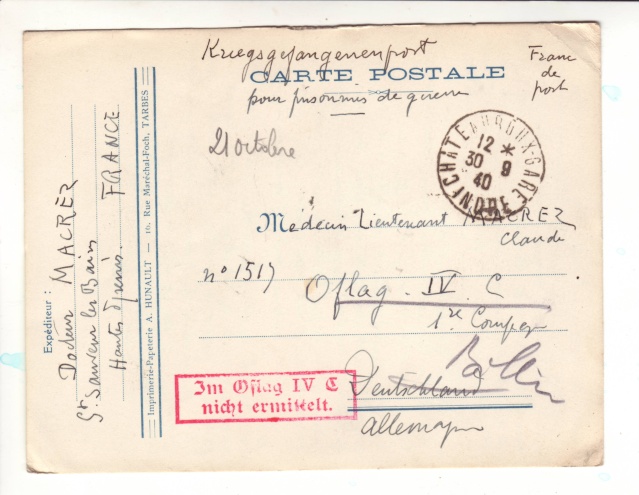 Kriegsgefangenenpost
CARTE POSTALE
pour prisonniers de guerre
Franc
de
port
21 octobre
CHÂTEAUROUX-GARE
12 *
30 9
40
INDRE
Médecin Lieutenant MACREZ
Claude
n° 1517
Oflag IV C
1re Compagnie
Im Oflag IV C
nicht ermittelt.
Deutschland
Allemagne
Expéditeur :
Docteur MACREZ
St Sauveur les Bains
Hautes Pyrénées. FRANCE
Imprimerie-Papeterie A. HUNAULT — 10, Rue Maréchal-Foch, TARBES